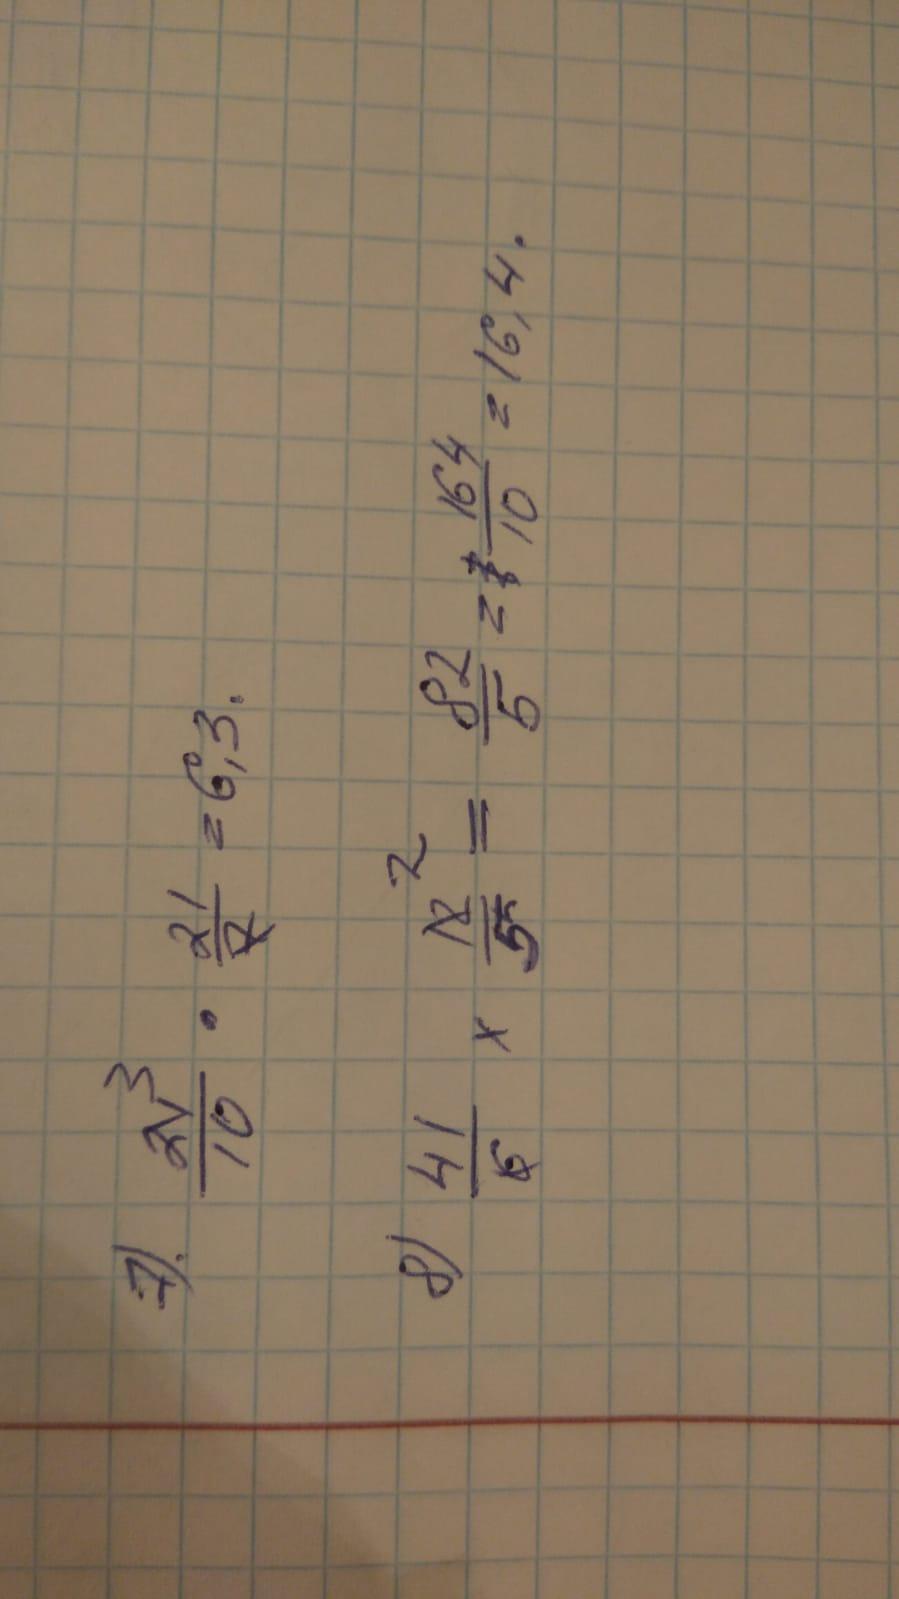 7). 21/10 3 · 21/7 = 6,3.
8) 41/6 × 12/5 2 = 82/5 = 164/10 = 16,4.